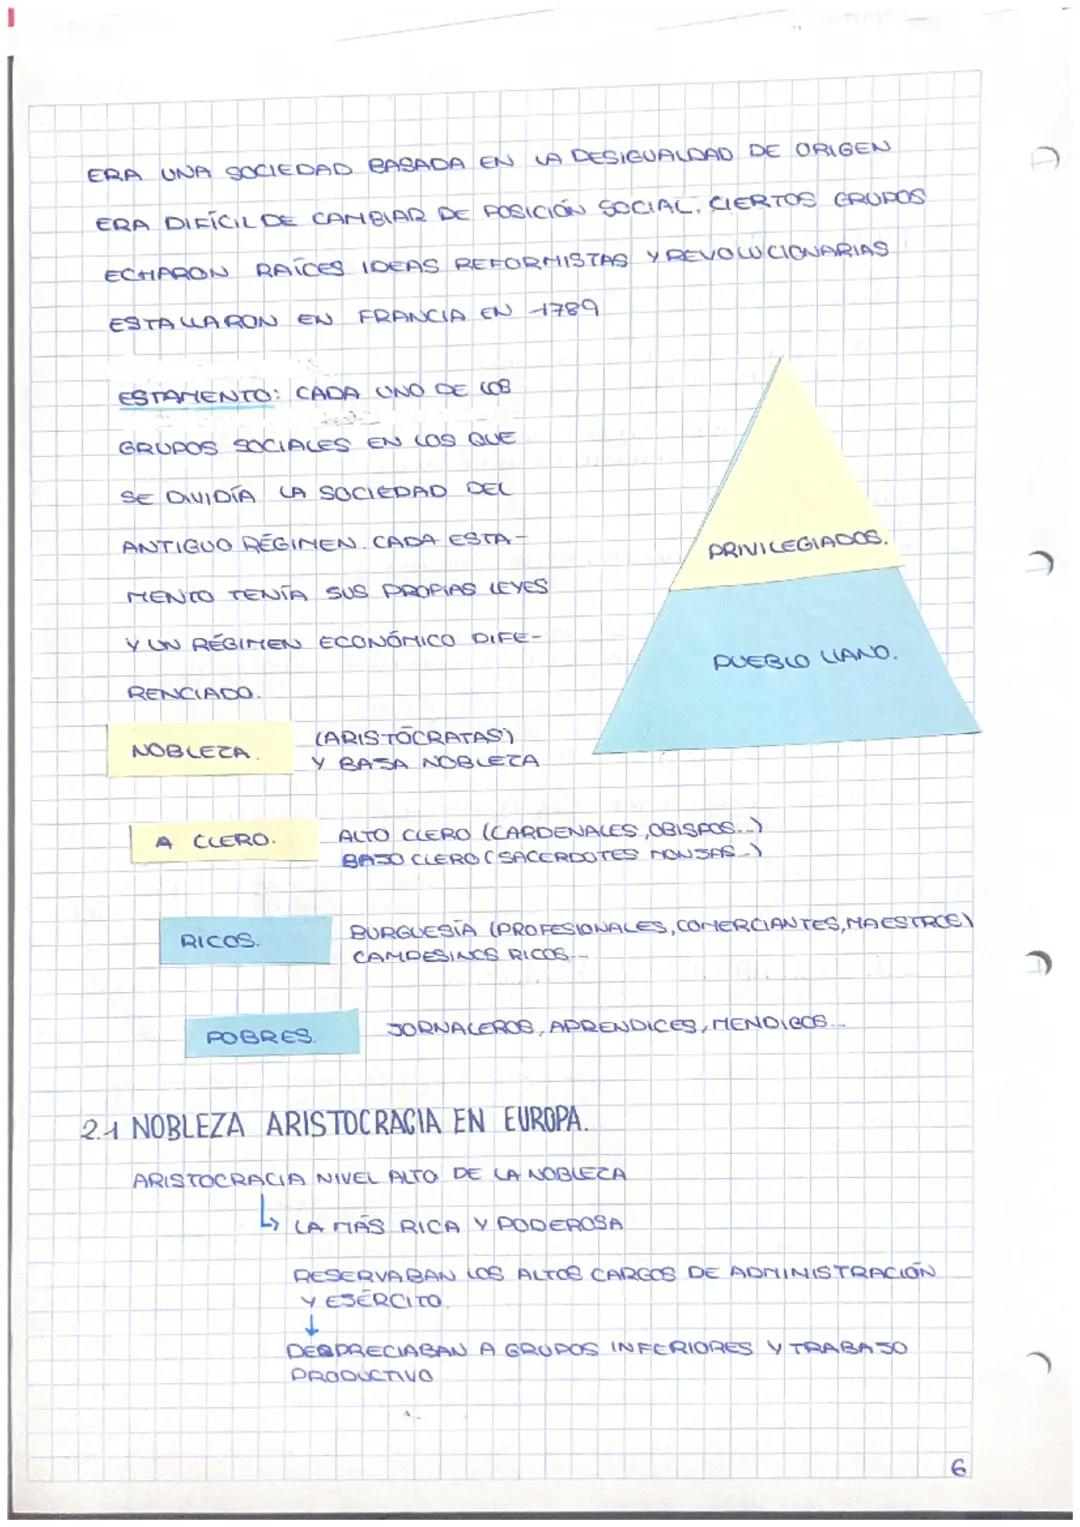 ERA UNA SOCIEDAD BASADA EN LA DESIGUALDAD DE ORIGEN
ERA DIFÍCIL DE CAMBIAR DE POSICIÓN SOCIAL. CIERTOS GRUPOS
ECHARON RAÍCES IDEAS REFORMISTAS Y REVOLUCIONARIAS
ESTALLARON EN FRANCIA EN 1789
ESTAMENTO: CADA UNO DE LOS
GRUPOS SOCIALES EN LOS QUE
SE DIVIDÍA LA SOCIEDAD DEL
ANTIGUO RÉGIMEN. CADA ESTA-
MENTO TENÍA SUS PROPIAS LEYES
Y UN RÉGIMEN ECONÓMICO DIFE-
RENCIADO.
PRIVILEGIADOS.
PUEBLO LLANO.
NOBLEZA.
(ARISTÓCRATAS)
Y BAJA NOBLEZA
A CLERO.
ALTO CLERO (CARDENALES, OBISPOS...)
BAJO CLERO (SACERDOTES MONJAS...)
RICOS.
BURGUESÍA (PROFESIONALES, COMERCIANTES, MAESTROS)
CAMPESINOS RICOS...
POBRES.
JORNALEROS, APRENDICES, MENDIGOS...
2.1 NOBLEZA ARISTOCRACIA EN EUROPA.
ARISTOCRACIA NIVEL ALTO DE LA NOBLEZA
↳ LA MÁS RICA Y PODEROSA
RESERVABAN LOS ALTOS CARGOS DE ADMINISTRACIÓN
Y EJÉRCITO.
↓
DESPRECIABAN A GRUPOS INFERIORES Y TRABAJO
PRODUCTIVO
6